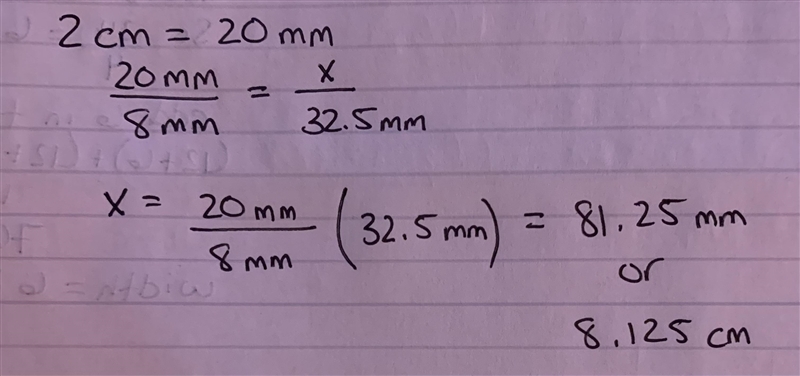 2 cm = 20 mm
20 mm / 8 mm = x / 32.5 mm
x = 20 mm / 8 mm (32.5 mm) = 81.25 mm
or
8.125 cm